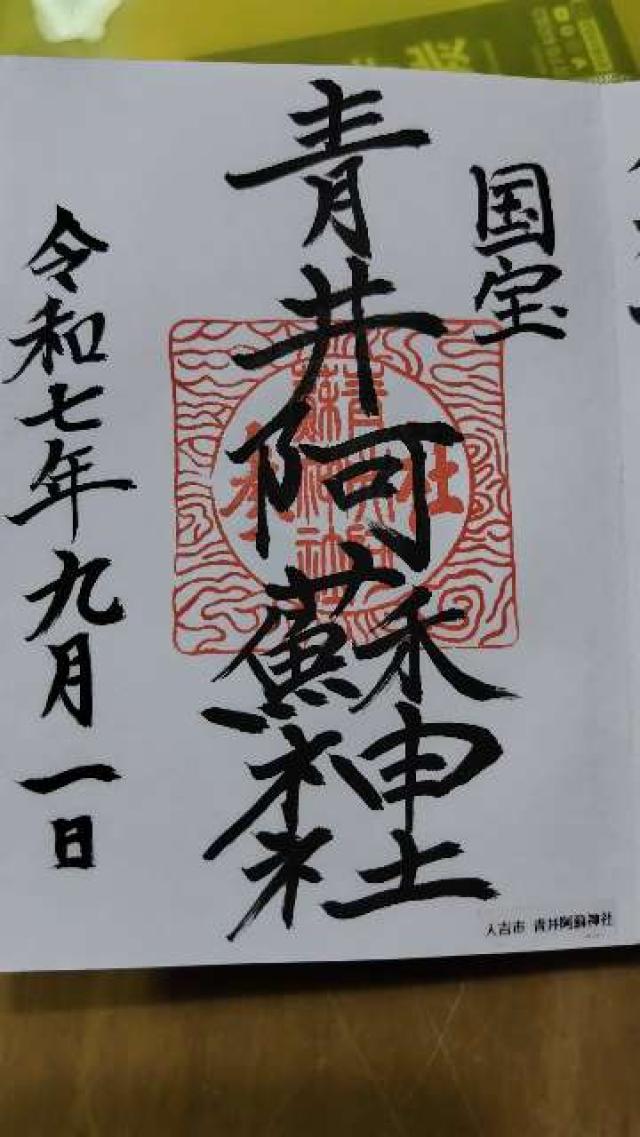 国宝
青井阿蘇神社
令和七年九月一日
人吉市 青井阿蘇神社